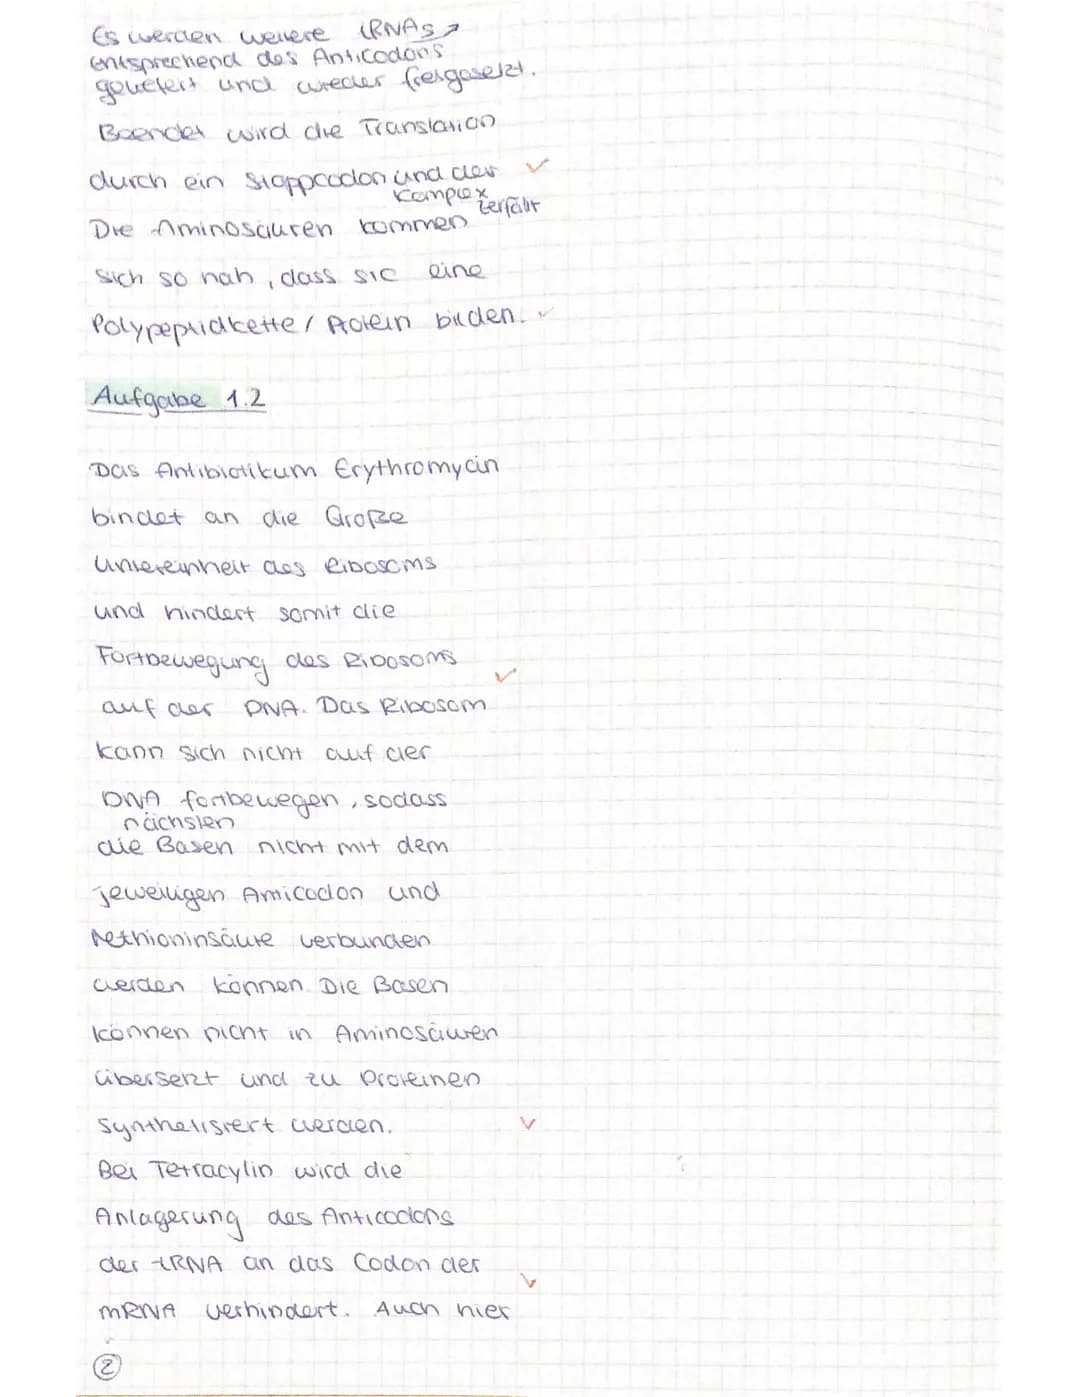 Es werden weitere tRNAs
entsprechend des Anticodons
geliefert und wieder freigesetzt.
Beendet wird die Translation
durch ein Stoppcodon und der
Komplex
zerfällt
Die Aminosäuren kommen
sich so nah, dass sie eine
Polypeptidkette/ Protein bilden.
Aufgabe 1.2
Das Antibiotikum Erythromycin
bindet an die Große
Untereinheit des Ribosoms
und hindert somit die
Fortbewegung des Ribosoms
auf der DNA. Das Ribosom
kann sich nicht auf der
DNA fortbewegen, sodass
nächsten
die Basen nicht mit dem
jeweiligen Anticodon und
Methioninsäure verbunden
werden können. Die Basen
können nicht in Aminosäuren
übersetzt und zu Proteinen
synthetisiert werden.
Bei Tetracylin wird die
Anlagerung des Anticodons
der tRNA an das Codon der
mRNA verhindert. Auch hier
2